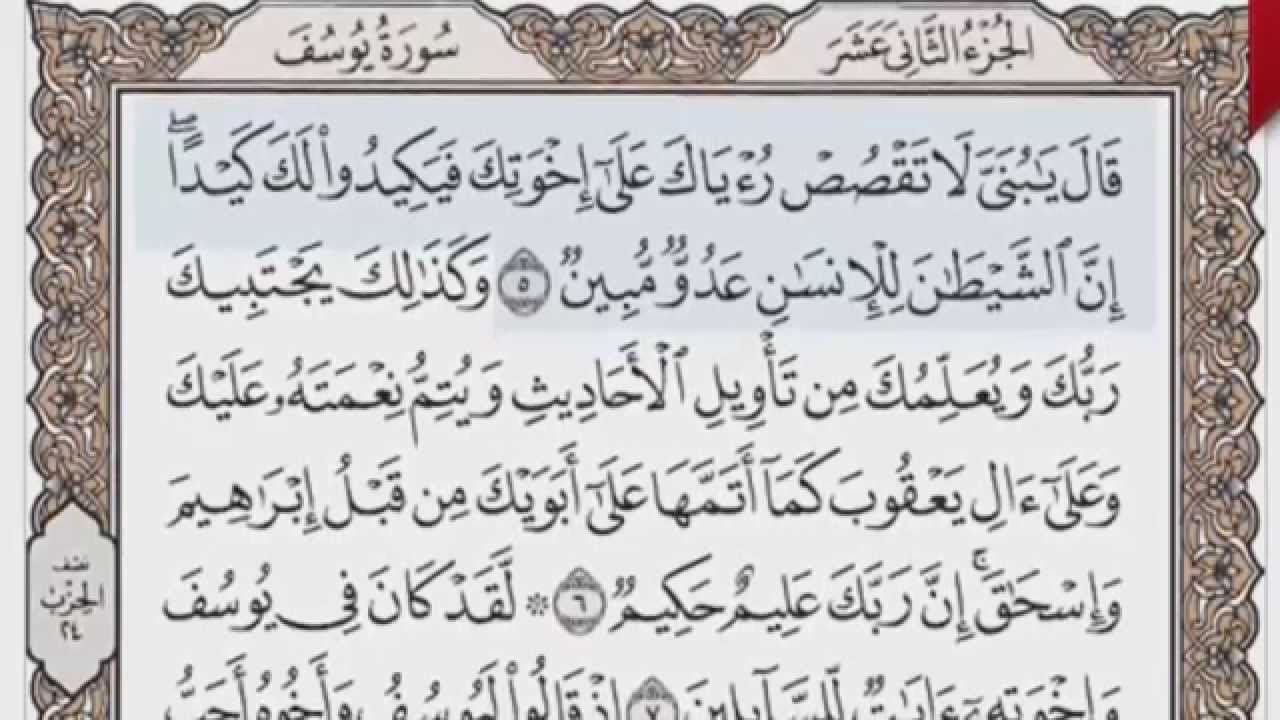 الجزء الثانى عشر
سورة يوسف
قَالَ يَـٰبُنَىَّ لَا تَقۡصُصۡ رُءۡيَاكَ عَلَىٰٓ إِخۡوَتِكَ فَيَكِيدُواْ لَكَ كَيۡدًاۖ
إِنَّ ٱلشَّيۡطَـٰنَ لِلۡإِنسَـٰنِ عَدُوٌّ مُّبِينٌ ٥ وَكَذَٰلِكَ يَجۡتَبِيكَ
رَبُّكَ وَيُعَلِّمُكَ مِن تَأۡوِيلِ ٱلۡأَحَادِيثِ وَيُتِمُّ نِعۡمَتَهُۥ عَلَيۡكَ
وَعَلَىٰٓ ءَالِ يَعۡقُوبَ كَمَآ أَتَمَّهَا عَلَىٰٓ أَبَوَيۡكَ مِن قَبۡلُ إِبۡرَٰهِيمَ
وَإِسۡحَـٰقَۚ إِنَّ رَبَّكَ عَلِيمٌ حَكِيمٌ ٦ ۞ لَّقَدۡ كَانَ فِي يُوسُفَ
وَإِخۡوَتِهِۦٓ ءَايَـٰتٌ لِّلسَّآئِلِينَ ٧ إِذۡ قَالُواْ لَيُوسُفُ وَأَخُوهُ أَحَبُّ
نصف
الحزب
٢٤